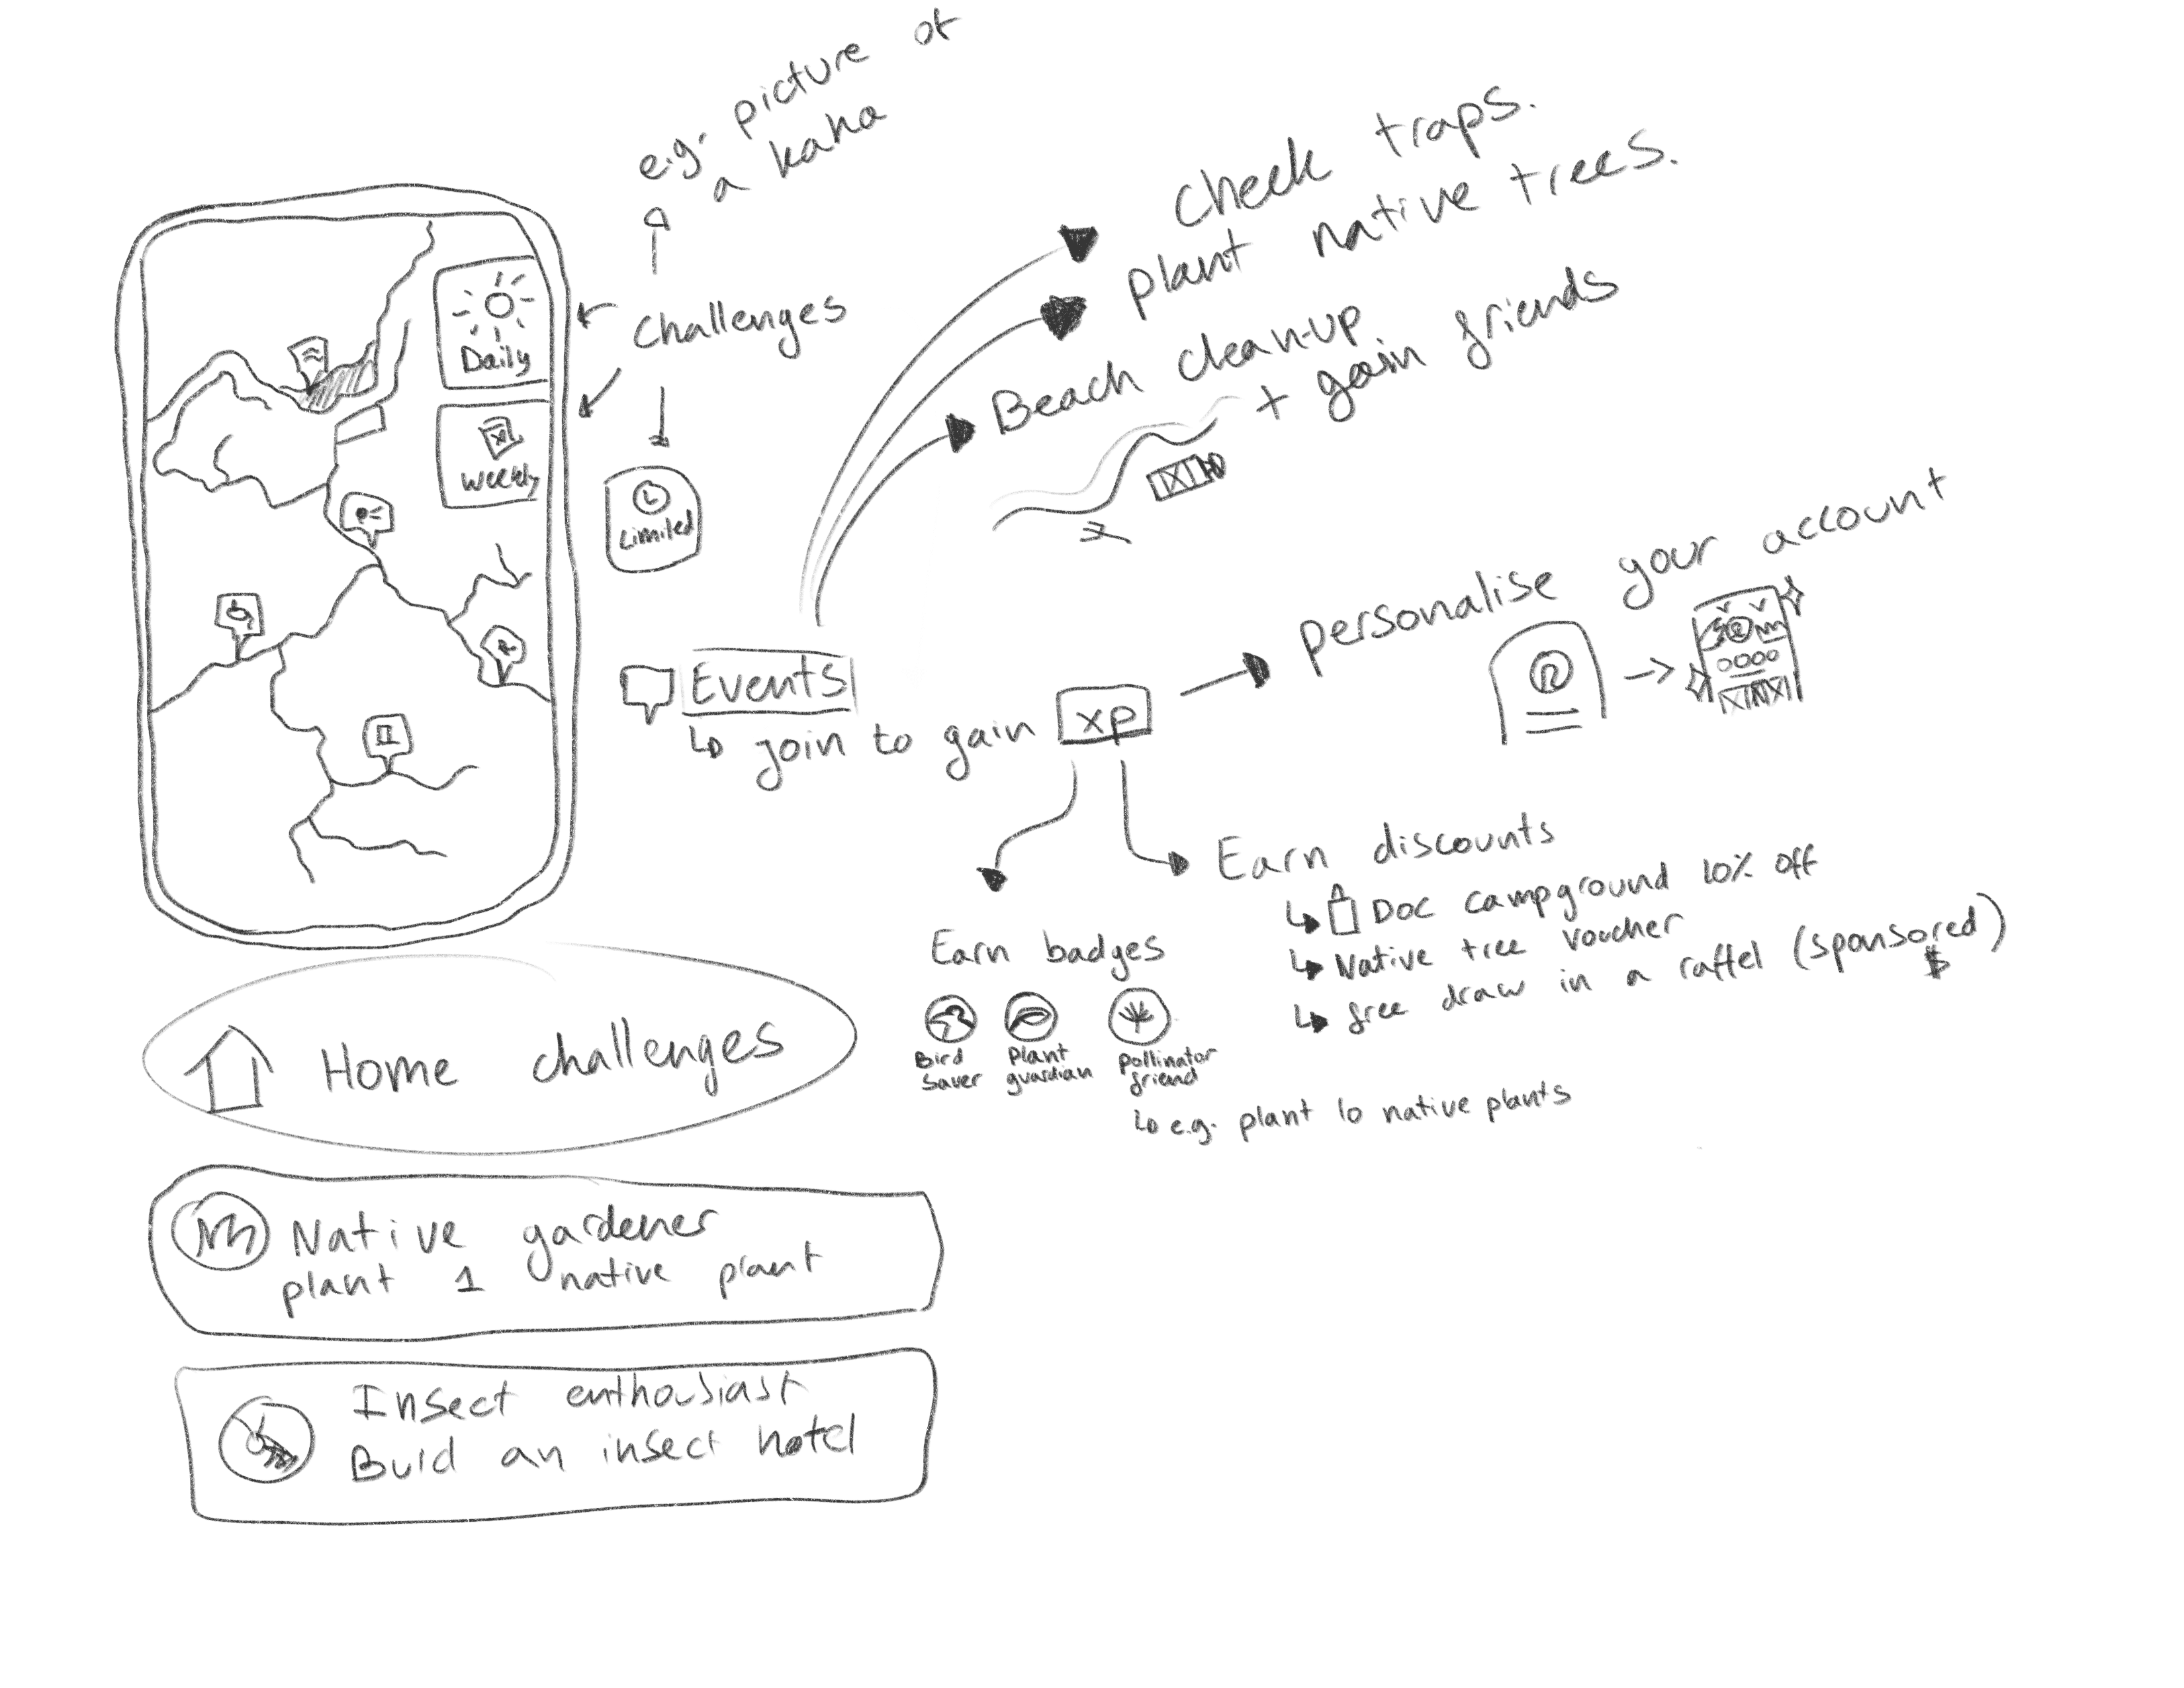 e.g. picture of
a kaka
Daily
Weekly
challenges
Limited
Check traps.
plant native trees.
Beach clean-up
+ gain friends
Events
join to gain xp
personalise your account
Earn discounts
DOC campground 10% off
Native tree voucher
free draw in a raffel (sponsored)
$
Earn badges
Bird
Saver
Plant
guardian
pollinator
friend
e.g. plant 10 native plants
Home challenges
Native gardener
plant 1 native plant
Insect enthousiast
Buid an insect hotel